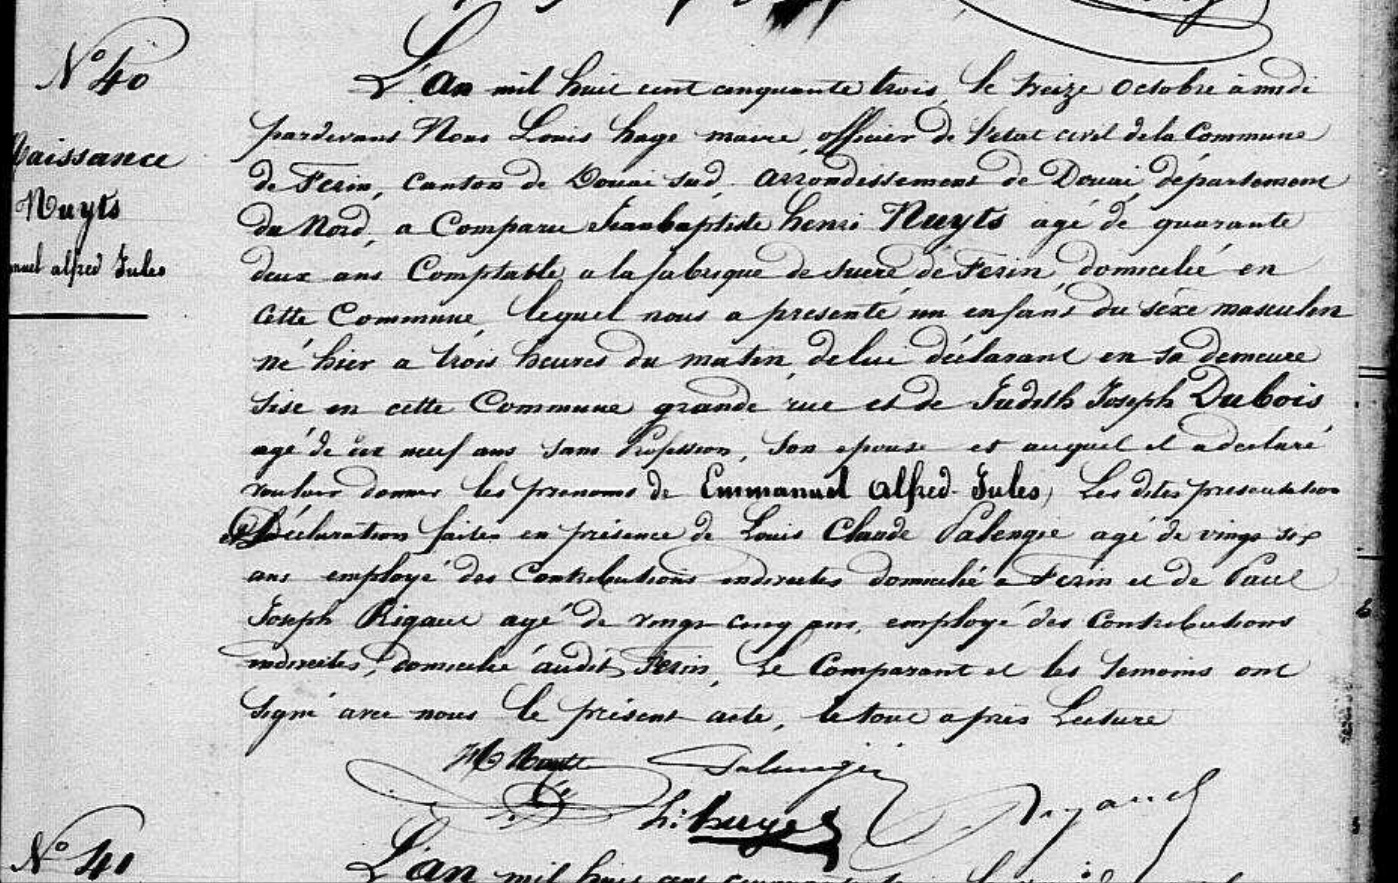 N° 40
Naissance
Nuyts
alfred Jules
L'an mil huit cent cinquante trois, le treize octobre à midi
pardevant Nous Louis hage maire, officier de l'etat civil de la Commune
de Ferin, Canton de Douai sud, arrondissement de Douai, département
du Nord, a Comparu Jeanbaptiste henri Nuyts agé de quarante
deux ans Comptable a la fabrique de sucre de Ferin, domicilié en
cette Commune, lequel nous a presenté un enfant du sexe masculin
né hier a trois heures du matin, de lui déclarant en sa demeure
sise en cette Commune grande rue et de Judith Joseph Dubois
agé de neuf ans sans Profession, son epouse et auquel il a declaré
vouloir donner les prenoms de Emmanuel alfred Jules, Les dites presentation
et Déclaration faites en présence de Louis Claude Palengié agé de vingt six
ans employé des Contributions indirectes domicilié a Ferin et de Paul
Joseph Rigaut agé de vingt cinq ans, employé des Contributions
indirectes, domicilié audit Ferin, Le Comparant et les temoins ont
Signé avec nous le présent acte, le tout après Lecture
Nuyts Palengié
h: hage Rigaut
N° 41
L'an mil huit cent cinquante